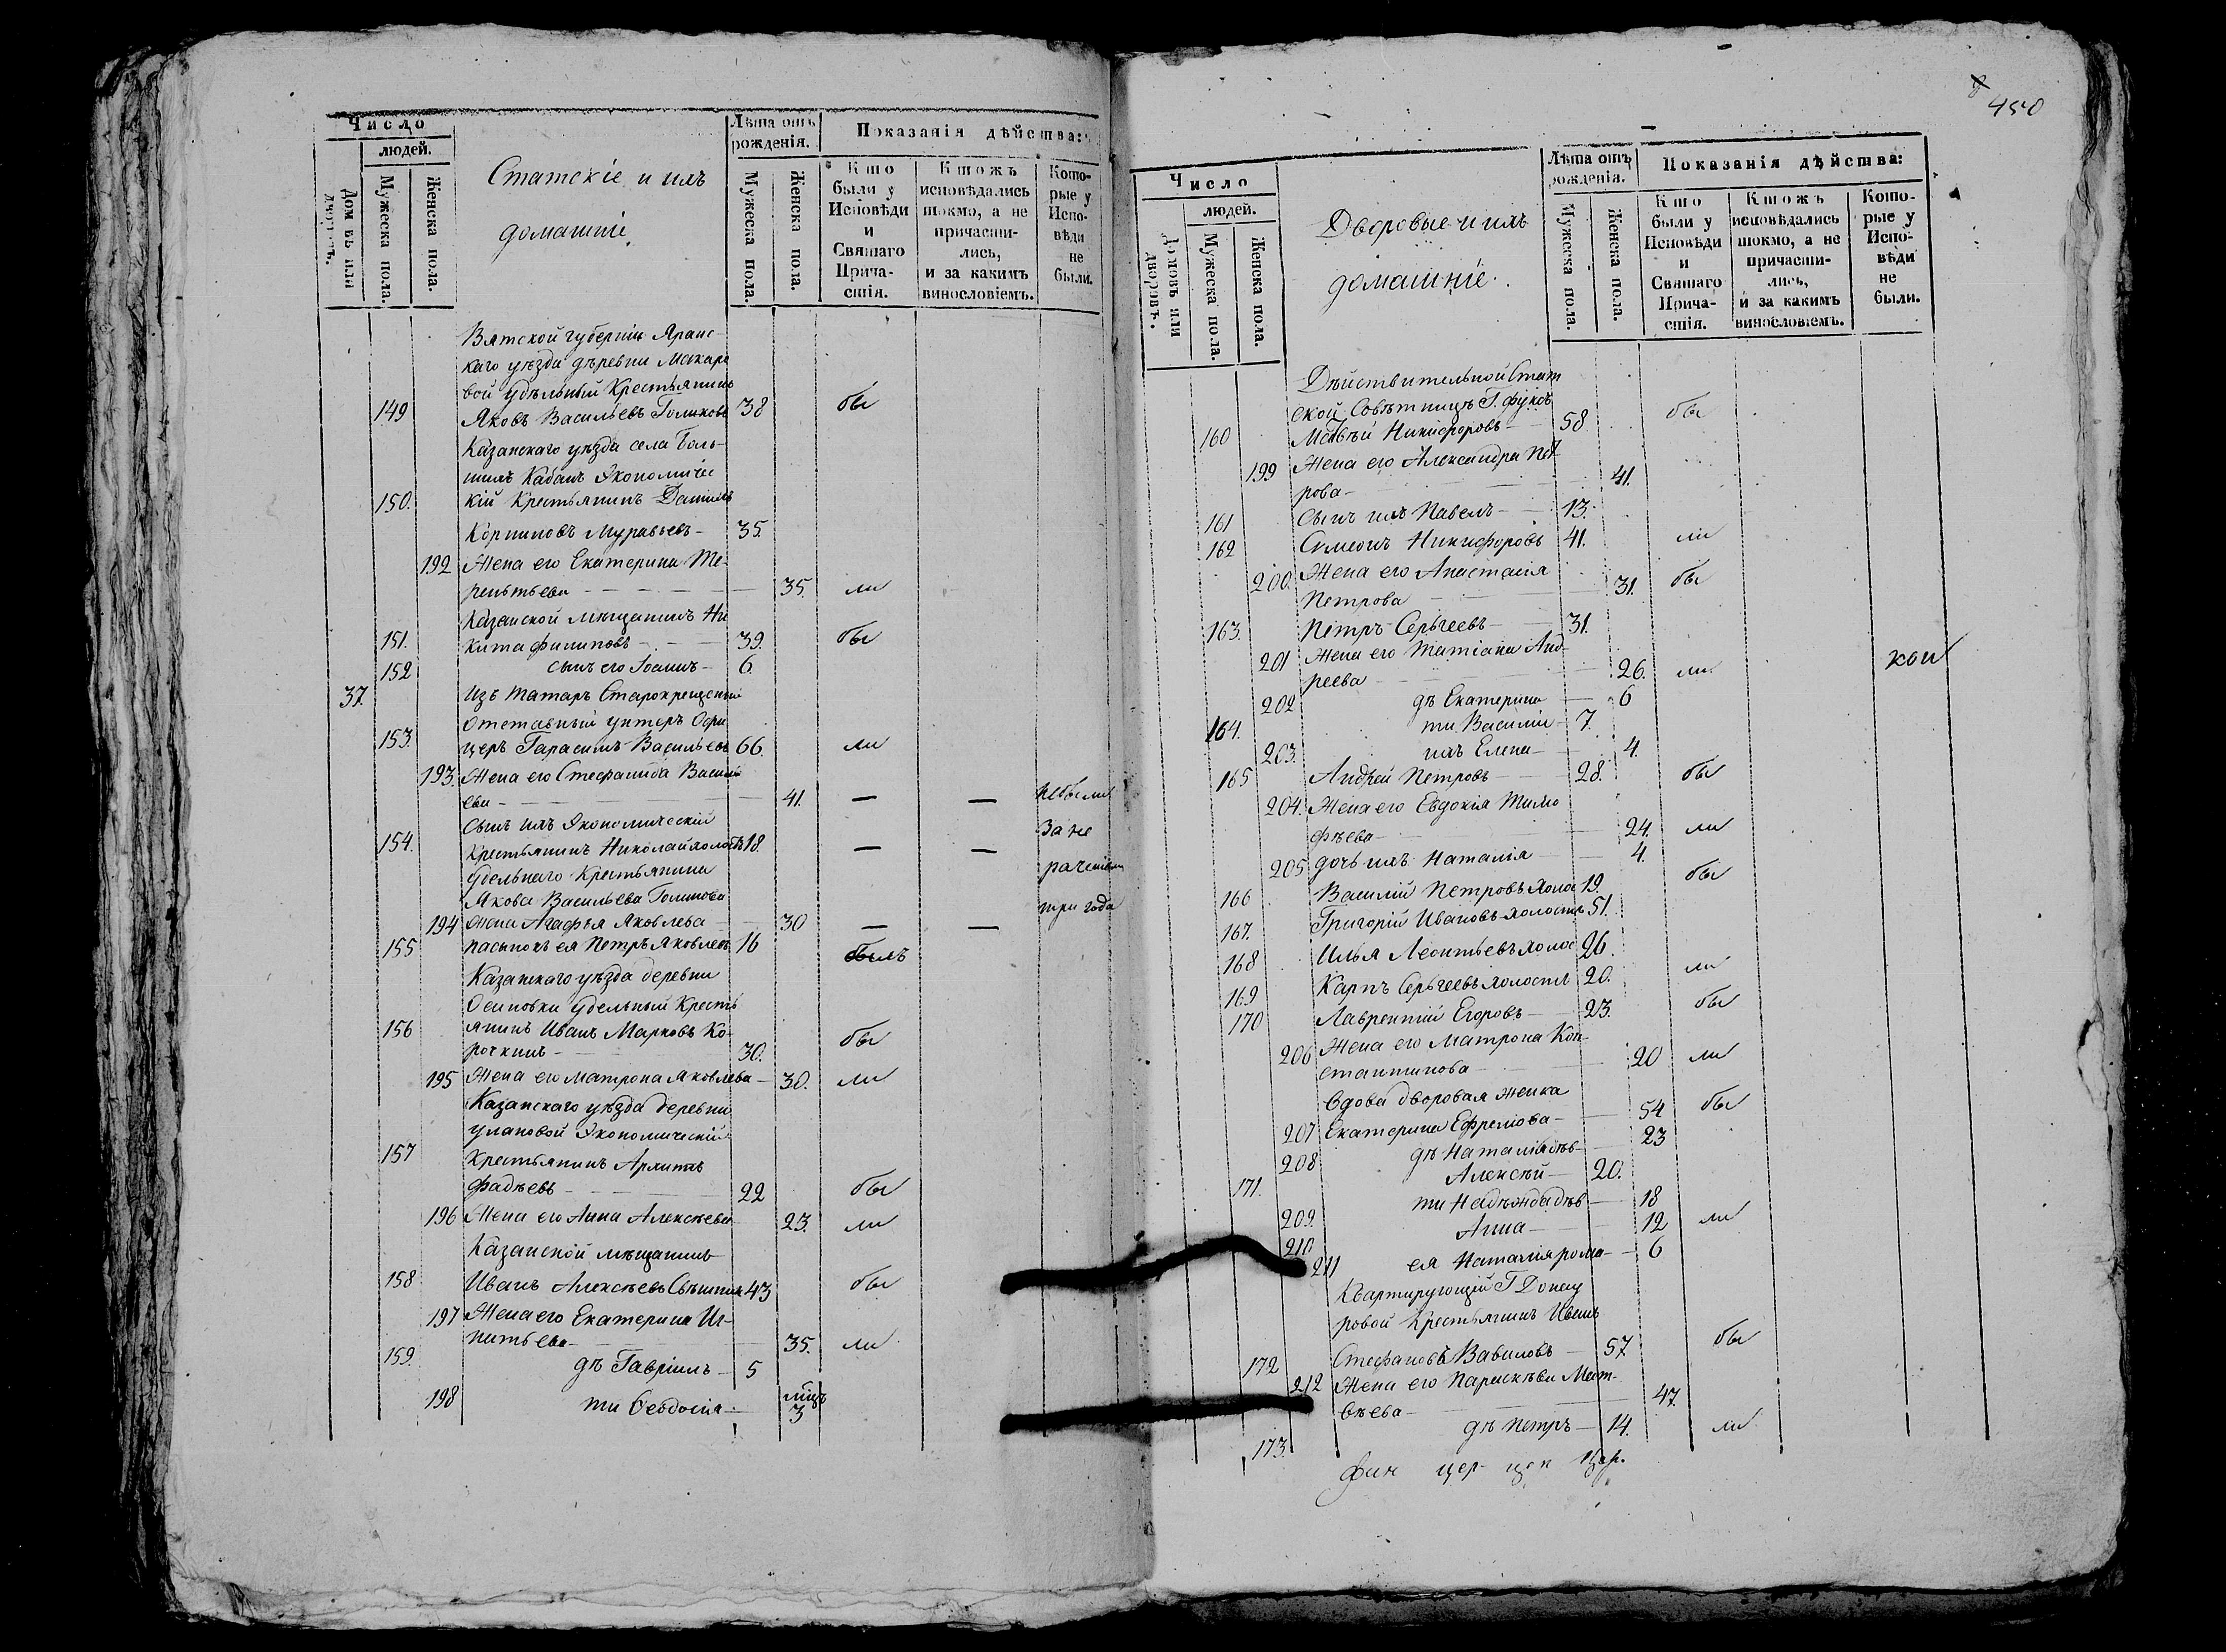 Число
людей.
Домовъ или дворовъ.
Мужеска пола.
Женска пола.
Статскіе и ихъ
домашніе
Лѣта отъ
рожденія.
Мужеска пола.
Женска пола.
Показанія дѣйства:
Кто
были у
Исповѣди
и
Святаго
Прича-
стія.
Ктожъ
исповѣдались
токмо, а не
причасти-
лись,
и за какимъ
винословіемъ.
Кото-
рые у
Испо-
вѣди
не
были.
Вятской губерніи Яранс-
каго уѣзда деревни Макаро
вой удѣльный Крестьянинъ
149 Яковъ Васильевъ Голиковъ 38 бы
Казанскаго уѣзда села Боль-
шихъ Кабанъ Экономичес
150. кій Крестьянинъ Даніилъ
Корниловъ Муравьевъ - 35.
192 Жена его Екатерина Те-
рентьева - 35. ли
Казанской мѣщанинъ Ни
151. кита Филиповъ - 39. бы
152 сынъ его Іоаннъ - 6.
37. Изъ татаръ Старокрещеный
Отставный унтеръ Офи
153. церъ Гарасимъ Васильевъ 66. ли
193. Жена его Стефанида Василь
ева - 41. — — небыли
сынъ ихъ Экономический За не
154. Крестьянинъ Николай холостъ 18. — —
Удельнаго Крестьянина рачением
Якова Васильева Голикова три года
194 Жена Агафья Яковлева - 30 — —
155 пасынокъ ея Петръ Яковлевъ 16 былъ
Казанскаго уѣзда деревни
Осиновки Удельный Кресть
156 янинъ Иванъ Марковъ Ко-
рочкинъ - 30. бы
195 Жена его Матрона Яковлева - 30. ли
Казанскаго уѣзда деревни
Улановой Экономическій
157 Крестьянинъ Архипъ
Фадѣевъ - 22 бы
196 Жена его Анна Алексѣева 23. ли
Казанской мѣщанинъ
158 Иванъ Алексѣевъ 43 бы
197 Жена его Екатерина Иг-
натьева - 35. ли
159. дѣ Гавріилъ - 5
198 ти Ѳеодосія - мцъ 3
450
Число
людей.
Домовъ или дворовъ.
Мужеска пола.
Женска пола.
Дворовые и ихъ
домашніе.
Лѣта отъ
рожденія.
Мужеска пола.
Женска пола.
Показанія дѣйства:
Кто
были у
Исповѣди
и
Святаго
Прича-
стія.
Ктожъ
исповѣдались
токмо, а не
причасти-
лись,
и за какимъ
винословіемъ.
Кото-
рые у
Испо-
вѣди
не
были.
Дѣйствительной Стат
ской Совѣтницѣ Г. Фуксъ
160 Матвѣй Никифоровъ - 58 бы
199 Жена его Александра Пет
рова - 41.
161 Сынъ ихъ Павелъ - 13.
162 Симеонъ Никифоровъ 41. ли
200. Жена его Анастасія
Петрова 31. бы
163. Петръ Сергеевъ - 31.
201 Жена его Татіана Анд-
реева - 26. ли
202 дѣ Екатерина - 6
164. ти Василій - 7.
203. ихъ Елена - 4.
165 Андрей Петровъ - 28. бы
204. Жена его Евдокія Тимо
фѣева - 24. ли
205 дочь ихъ Наталія - 4.
166 Василій Петровъ холос 19. бы
167. Григорій Ивановъ холостъ 51.
168 Илья Леонтьевъ холос 26.
169 Карпъ Сергеевъ холостъ 20. ли
170 Лаврентій Егоровъ - 23. бы
206 Жена его Матрона Кон-
стантинова - 20 ли
вдова дворовая женка
207 Екатерина Ефремова - 54 бы
208 дѣ Наталія дѣв - 23
171. Алексѣй - 20.
209. ти Надежда дѣв - 18
210 Анна - 12 ли
211 ея Наталія - 6
Квартирующій Г
ровой Крестьянинъ Иванъ
172 Стефановъ Вавиловъ - 57 бы
212 Жена его Парасквева Мат-
вѣева - 47.
173. дѣ Петръ - 14. ли